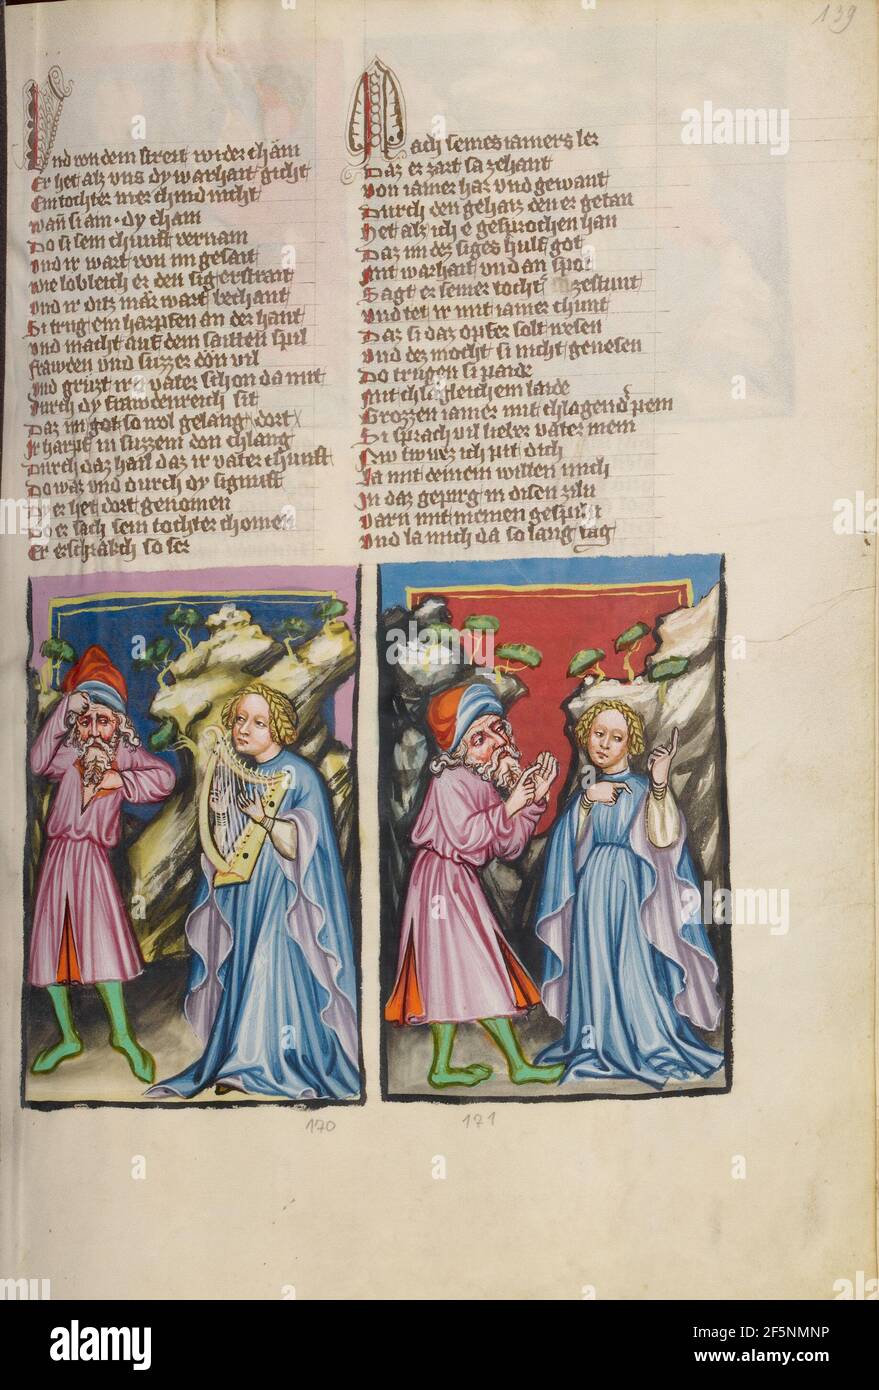 139
Und von dem streit wider chäm
Er het alz uns dy warhait gicht
Ein tochter mer chind nicht
wañ si am · dy cham
Do si sein chunft vernam
Und ir wart von im gesait
wie lobleich er den sig erstrait
Und ir ditz mär wart bechant
Si trug ein harpfen an der hant
Und macht auf dem saitten spil
frawden und suzzer dön vil
Und grüzt irn vater schon da mit
Durch dy frawdenreich sit
Daz im got so wol gelang dort
Ir harpf in suzzem don chlang
Durch daz hail daz ir vater chunft
Do waz und durch dy signuft
Dy er het dort genomen
Do er sach sein tochter chomen
Er erschrakch so ser
Nach seines iamers ler
Daz er zart sa zehant
Von iamer har und gewant
Durch den gehaiz den er getan
Het alz ich e gesprochen han
Daz im dez siges hulf got
Mit warhait und an spot
Sagt er seiner tocht zestunt
Und tet ir mit iamer chunt
Daz si daz opfer solt wesen
Und dez mocht si nicht genesen
Do trugen si paide
Mit chlagleichem laide
Grozzen iamer mit chlagender pein
Si sprach vil lieber vater mein
Nu twing ich pit dich
La mit deinem willen mich
In daz gepirg in disen ziln
Varn mit meinen gespiln
Und la mich da so lang tag
170
171
alamy
Image ID: 2F5NMNP
www.alamy.com